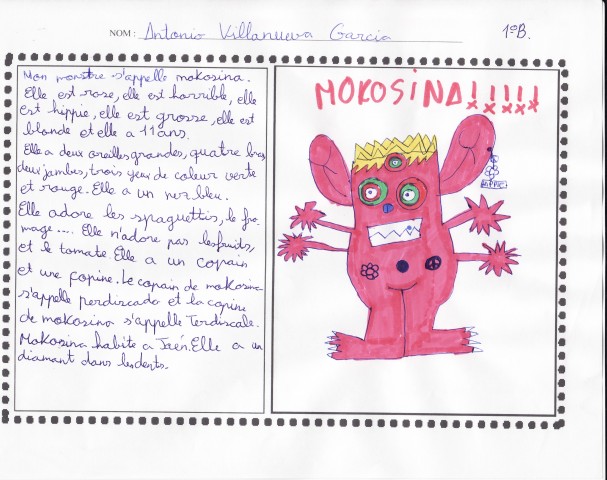 NOM: Antonio Villanueva García 1ºB.
Mon monstre s'appelle mokosina.
Elle est rose, elle est horrible, elle
est hippie, elle est grosse, elle est
blonde et elle a 11 ans.
Elle a deux oreilles grandes, quatre bras,
deux jambes, trois yeux de coleur verte
et rouge. Elle a un nez bleu.
Elle adore les spaguettis, le fro-
mage.... Elle n'adore pas les fruits,
et le tomate. Elle a un copain
et une copine. Le copain de mokosina
s'appelle perdiscado et la copine
de mokosina s'appelle Terdiscale.
Mokosina habite a Jaén. Elle a un
diamant dans les dents.
MOKOSINA!!!!!
HIPPIE